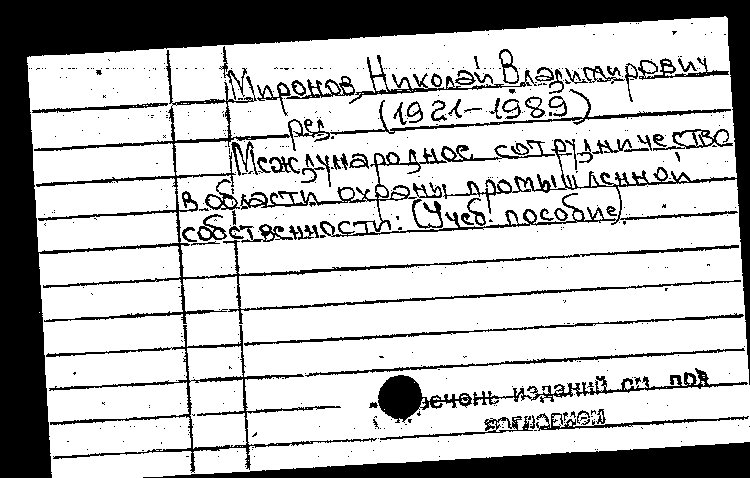 Миронов, Николай Владимирович
ред. (1921-1989)
Международное сотрудничество
в области охраны промышленной
собственности: (Учеб. пособие)
изданий см. под
заглавием